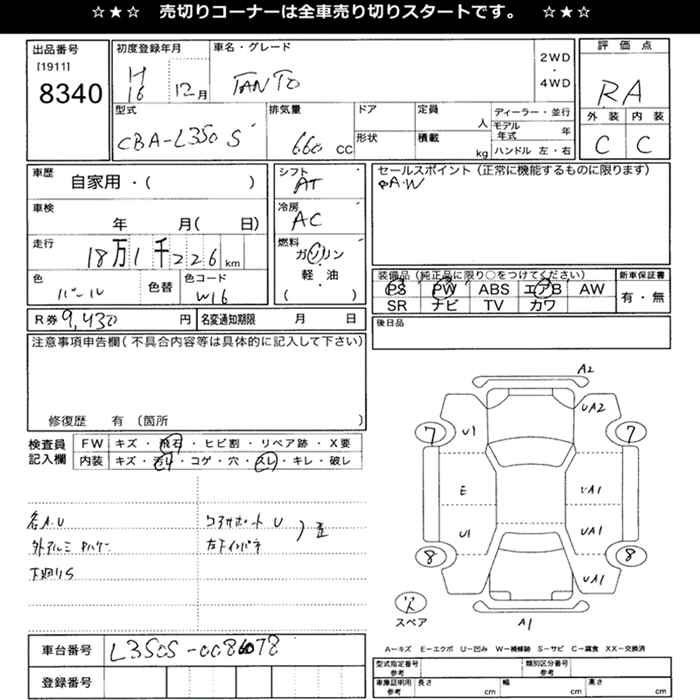 ☆★☆ 売切りコーナーは全車売り切りスタートです。 ☆★☆
出品番号
[1911]
8340
初度登録年月
H16 12月
車名・グレード
TANTO
2WD・4WD
評価点
RA
外装 内装
C C
型式
CBA-L350S
排気量
660 cc
ドア
形状
定員 人
積載 kg
ディーラー・並行
モデル年式 年
ハンドル 左・右
車歴
自家用・( )
車検
年 月( 日)
走行
18万1千226km
色
パール
色替
色コード
W16
シフト
AT
冷房
AC
燃料
ガソリン
軽・油
( )
セールスポイント(正常に機能するものに限ります)
A・W
装備品(純正品に限り○をつけてください)
PS PW ABS エアB AW
SR ナビ TV カワ
新車保証書
有・無
R券 9,430円
名変通知期限 月 日
後日品
注意事項申告欄(不具合内容等は具体的に記入して下さい)
修復歴 有 〔箇所 〕
検査員記入欄
FW キズ・飛石・ヒビ割・リペア跡・X要
内装 キズ・汚れ・コゲ・穴・スレ・キレ・破レ
各A.U
コアサポート U
外アルミ
下廻りS
A2
UA2
U1
7 7
E
UA1
U1 UA1
8 8
UA1
A1
スペア
A−キズ E−エクボ U−凹み W−補修跡 S−サビ C−腐食 XX−交換済
車台番号
L350S-0086078
登録番号
型式指定番号 参考
類別区分番号 参考
車庫証明用 参考
長さ cm
幅 cm
高さ cm